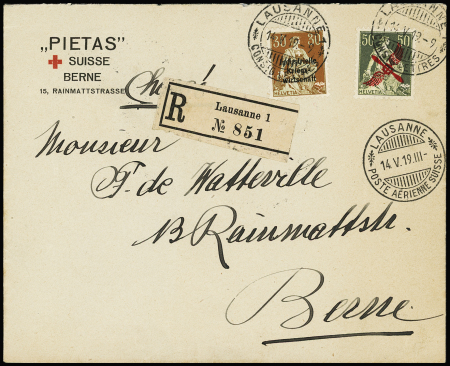 „PIETAS”
SUISSE
BERNE
15, RAINMATTSTRASSE
Chargé
R
Lausanne 1
№ 851
LAUSANNE
14.V.19
30 30
Industrielle
Kriegs-
wirtschaft
HELVETIA
LAUSANNE
14.V.19-9
50 50
HELVETIA
LAUSANNE
14.V.19.III-
POSTE AÉRIENNE SUISSE
Monsieur
F. de Watteville
13 Rainmattstr.
Berne